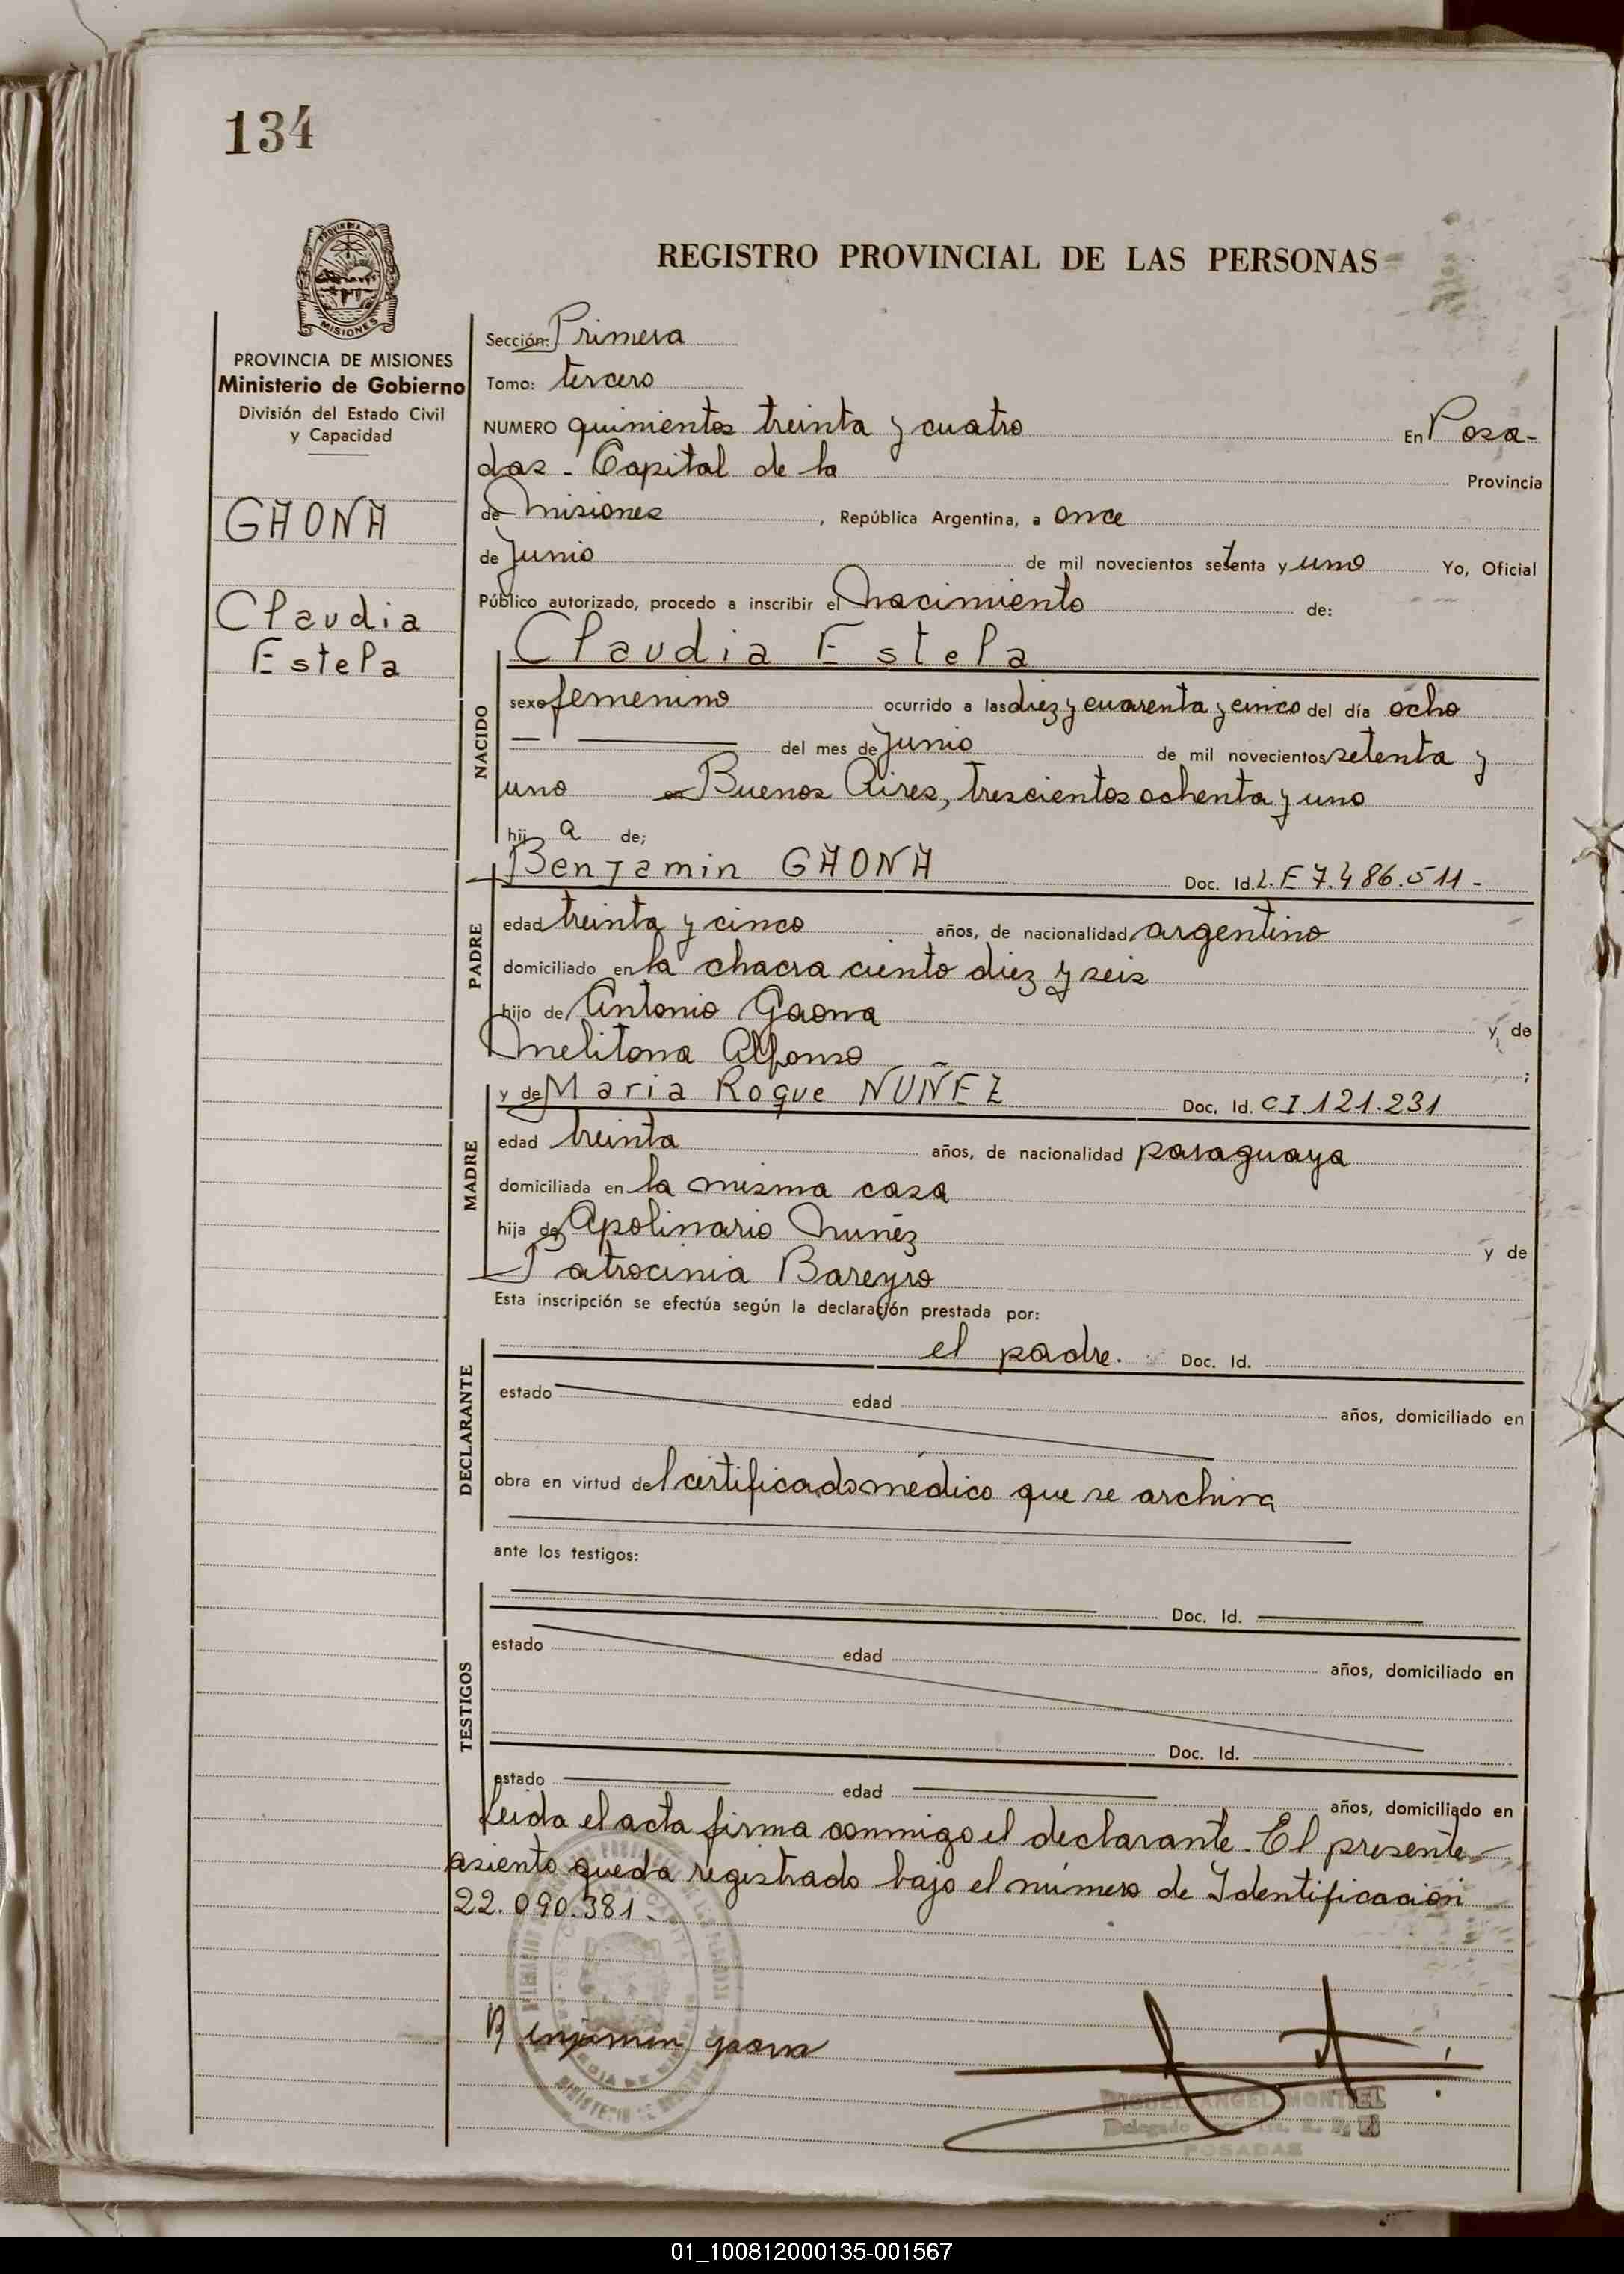 134
REGISTRO PROVINCIAL DE LAS PERSONAS
PROVINCIA DE MISIONES
Ministerio de Gobierno
División del Estado Civil
y Capacidad
GAONA
Claudia
Estela
Sección: Primera
Tomo: tercero
NUMERO quinientos treinta y cuatro En Posa-
das - Capital de la Provincia
de Misiones, República Argentina, a once
de Junio de mil novecientos setenta y uno Yo, Oficial
Público autorizado, procedo a inscribir el Nacimiento de:
Claudia Estela
NACIDO
sexo femenino ocurrido a las diez y cuarenta y cinco del día ocho
del mes de Junio de mil novecientos setenta y
uno en Buenos Aires, trescientos ochenta y uno
hij a de;
PADRE
Benjamin GAONA Doc. Id. L.E 7.486.511-
edad treinta y cinco años, de nacionalidad argentino
domiciliado en la chacra ciento diez y seis
hijo de Antonio Gaona y de
Melitona Alfonso ;
MADRE
y de Maria Roque NUÑEZ Doc. Id. CI.121.231
edad treinta años, de nacionalidad paraguaya
domiciliada en la misma casa
hija de Apolinario Nuñez y de
Patrocinia Bareyro
Esta inscripción se efectúa según la declaración prestada por:
DECLARANTE
el padre. Doc. Id.
estado edad años, domiciliado en
obra en virtud del certificado médico que se archiva
ante los testigos:
TESTIGOS
Doc. Id.
estado edad años, domiciliado en
Doc. Id.
estado edad años, domiciliado en
Leida el acta firma conmigo el declarante. El presente
asiento queda registrado bajo el número de Identificación
22.090.381.-
Benjamin gaona
MIGUEL ANGEL MONTIEL
Delegado
POSADAS
01_100812000135-001567